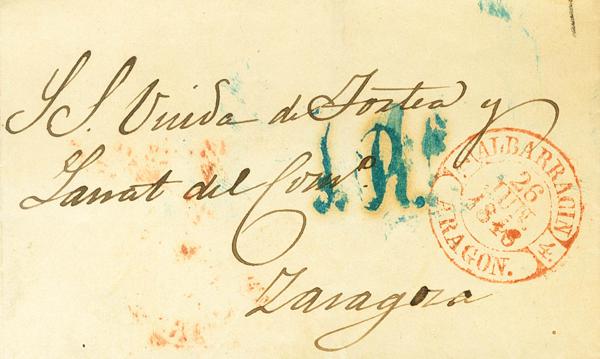 S S. Viuda de Fortea y
Larrat del Com.º
Zaragoza
1. R.s
ALBARRACIN
26
JUN
1846
ARAGON.